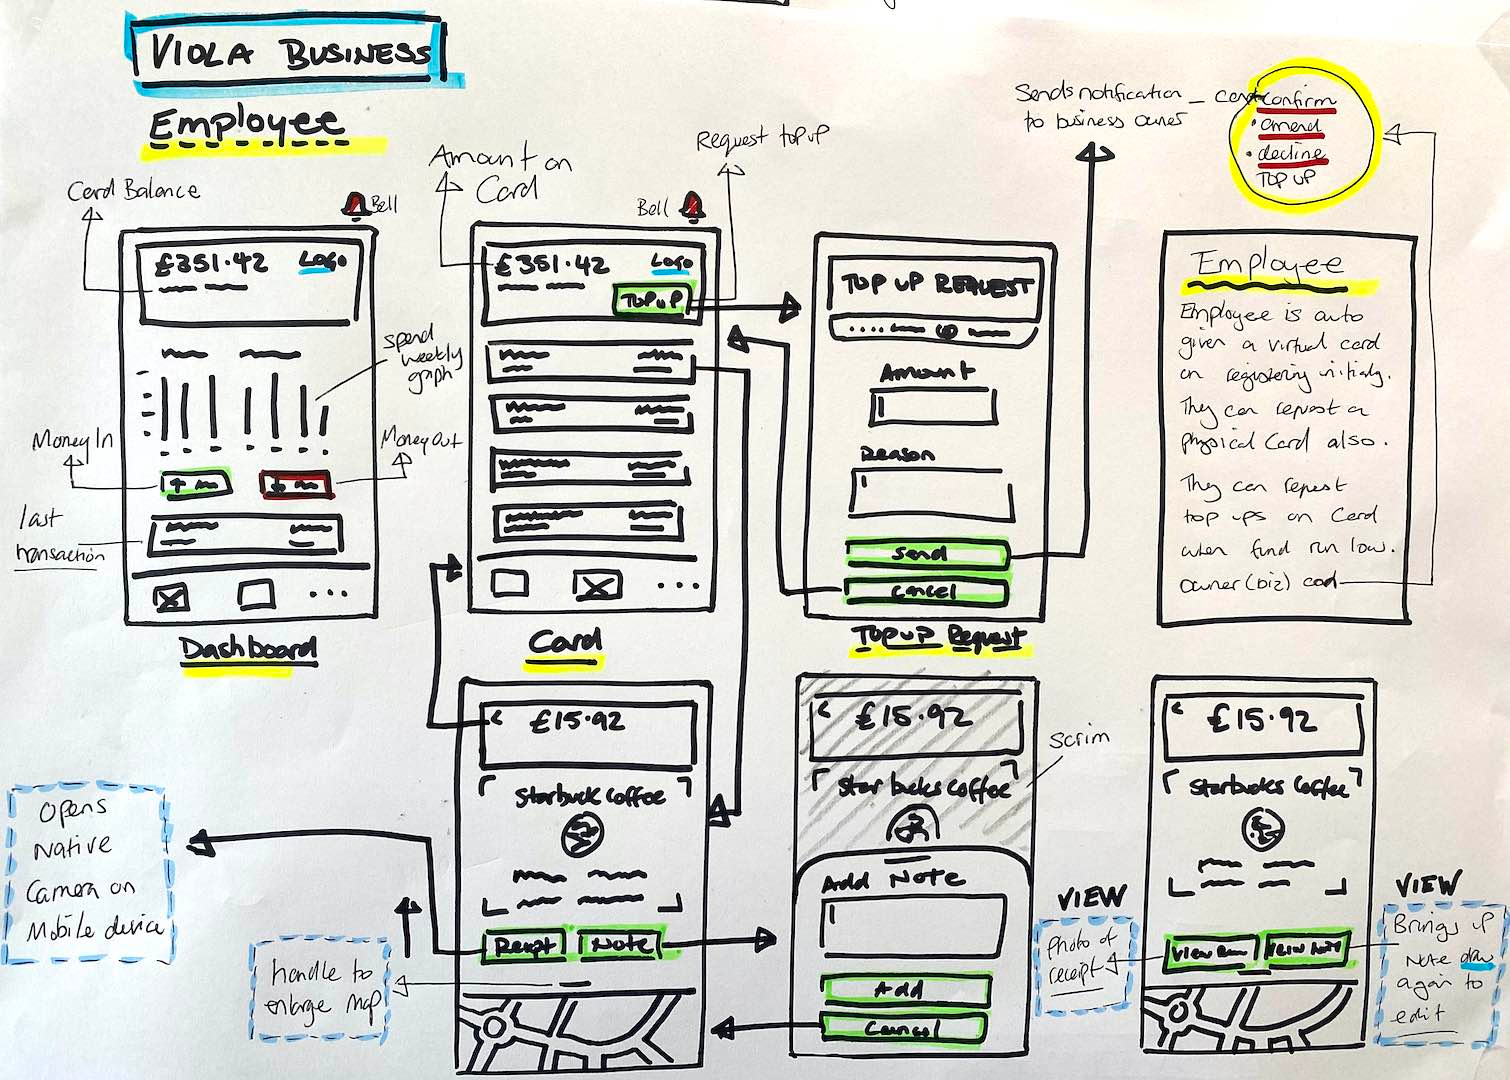 VIOLA BUSINESS
Employee
Card Balance
Bell
£351.42 Logo
spend
weekly
graph
Money In
Money Out
last
transaction
Dashboard
Amount on
Card
Request top up
Bell
£351.42 Logo
TOP UP
Card
TOP UP REQUEST
Amount
Reason
Send
Cancel
Top up Request
Sends notification
to business owner
confirm
• amend
• decline
TOP UP
Employee
Employee is auto
given a virtual card
on registering initialy.
They can request a
physical Card also.
They can request
top ups on Card
when fund run low.
owner (biz) can
< £15.92
Starbuck Coffee
Receipt Note
Opens
Native
Camera on
Mobile device
handle to
enlarge map
< £15.92
Starbucks Coffee
Add Note
Add
Cancel
Scrim
< £15.92
Starbucks Coffee
View View Note
VIEW
photo of
receipt
VIEW
Brings up
Note draw
again to
edit